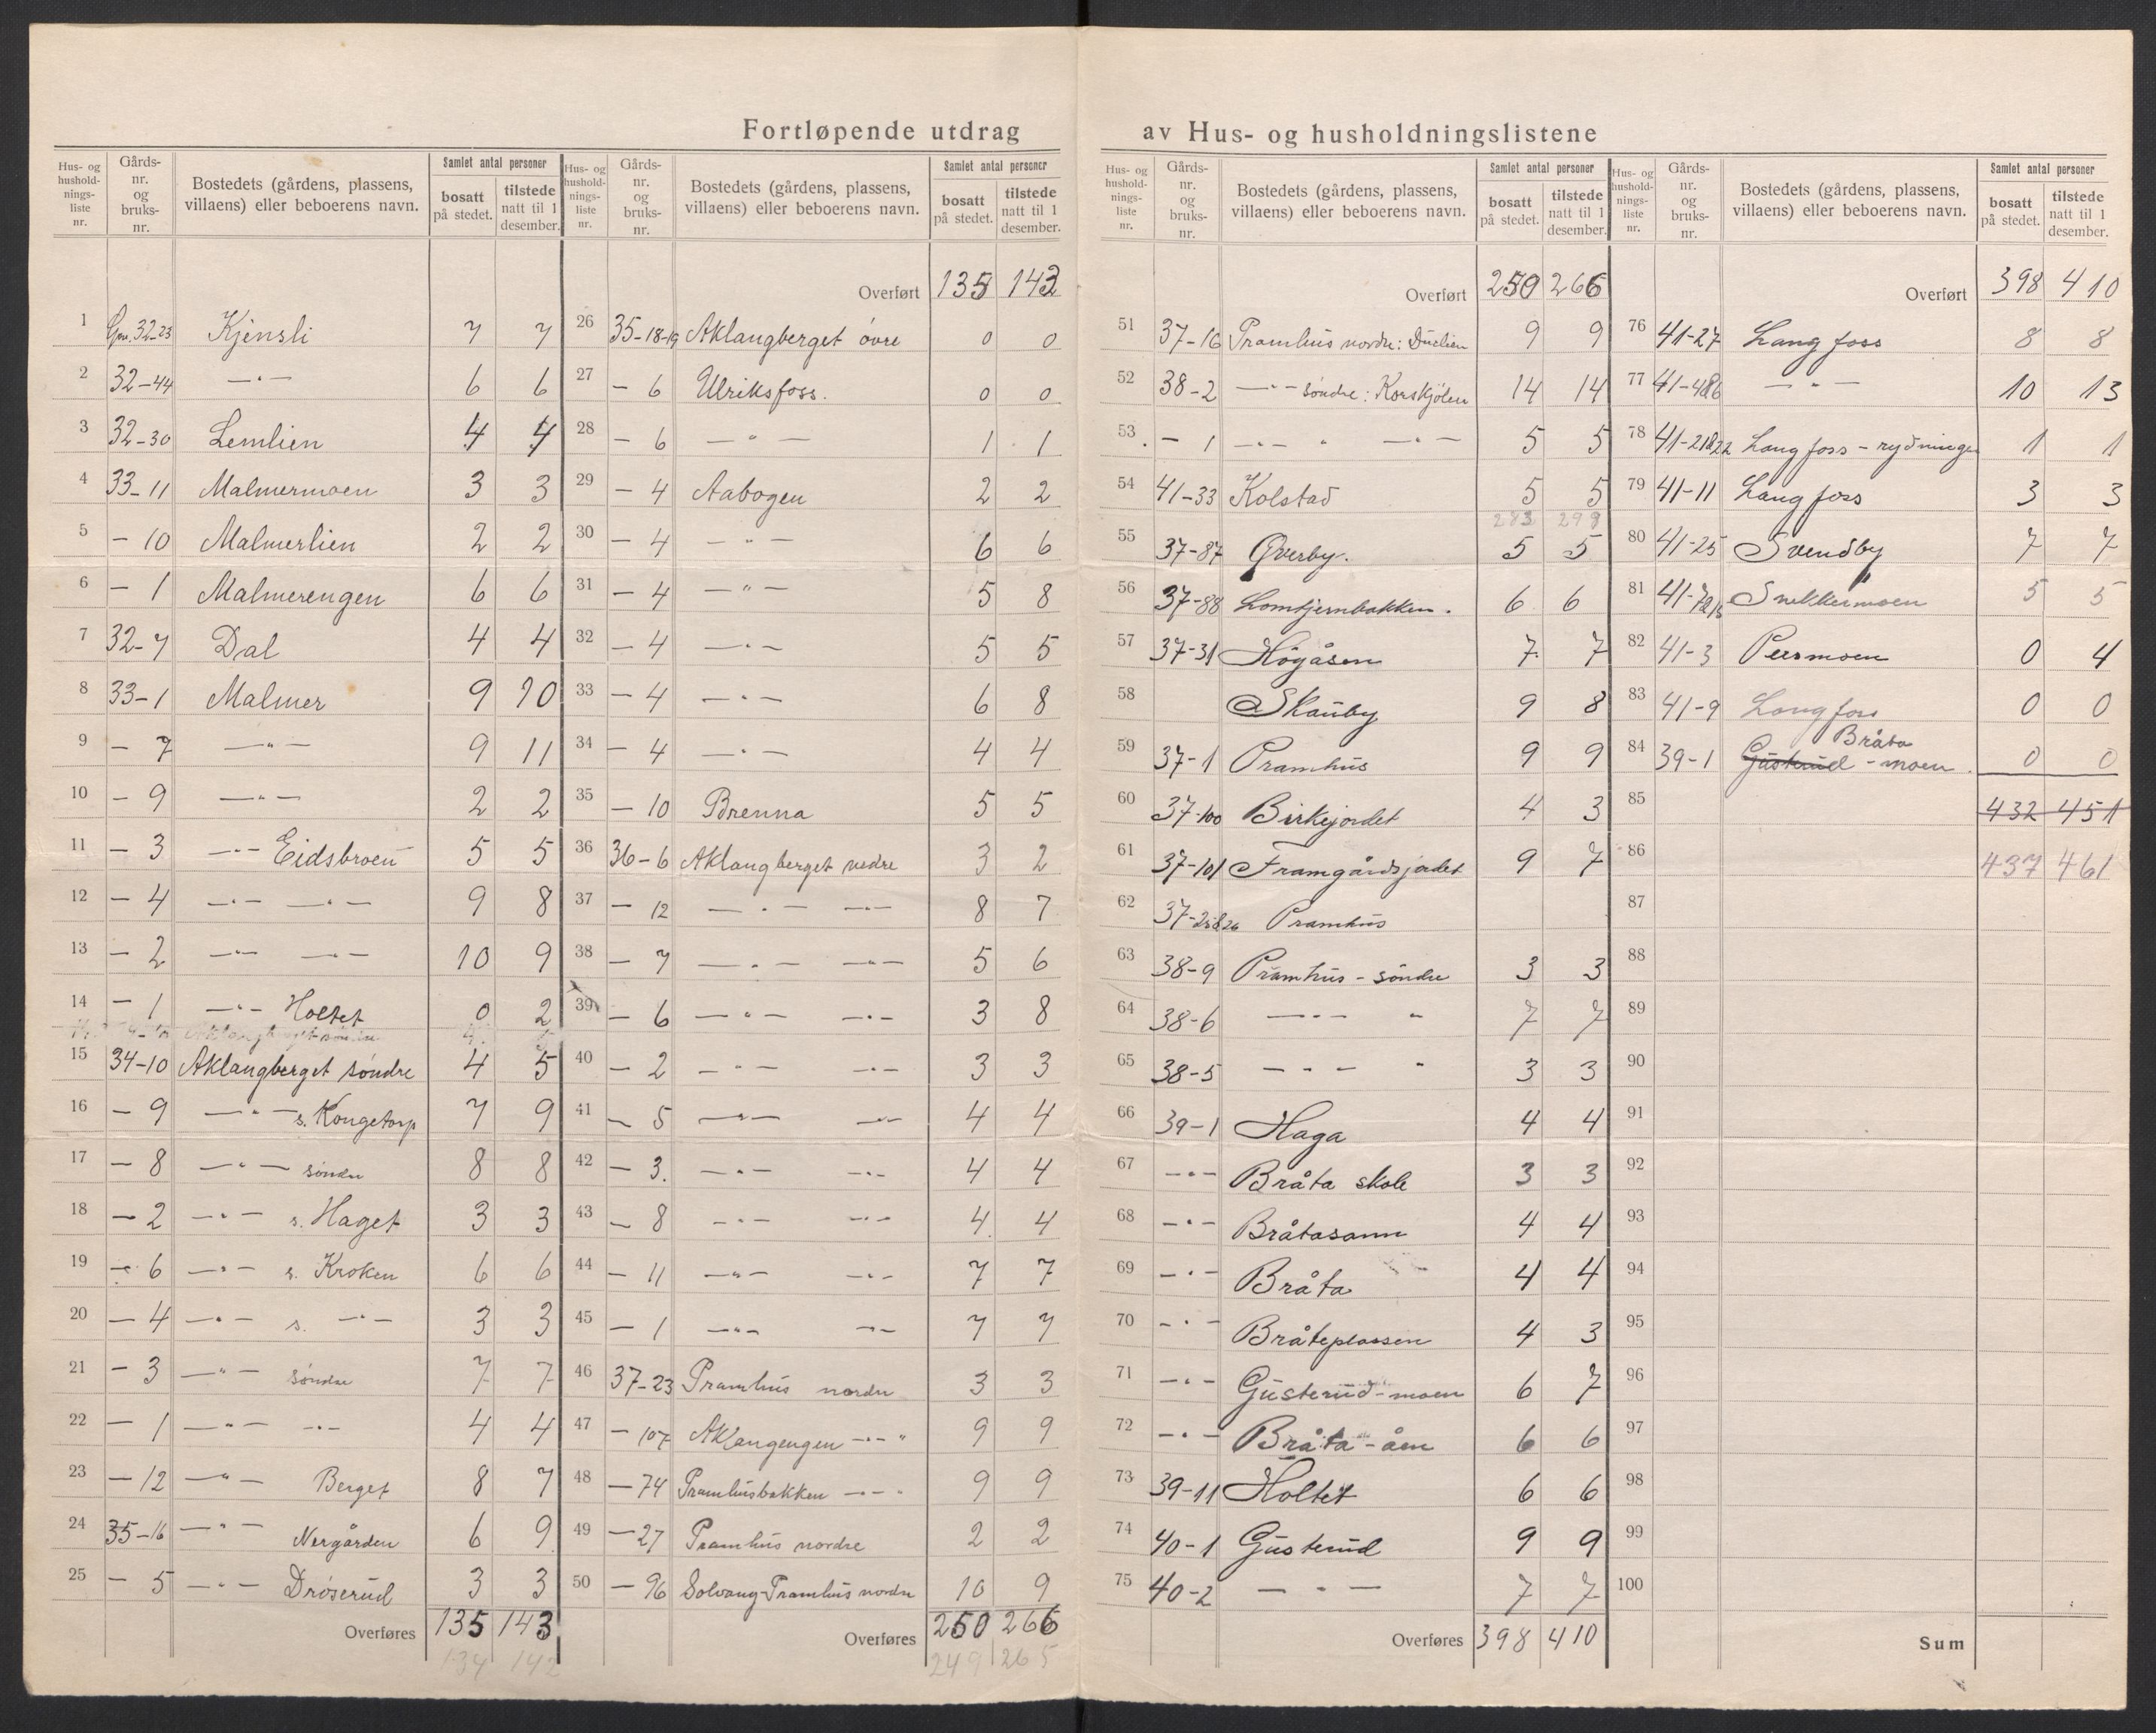 Fortløpende utdrag av Hus- og husholdningslistene
Hus- og husholdnings-liste nr. | Gårds-nr. og bruks-nr. | Bostedets (gårdens, plassens, villaens) eller beboerens navn. | Samlet antal personer | bosatt på stedet. | tilstede natt til 1 desember.
1 Gnr. 32-23 Kjensli 7 7
2 32-44 —"— 6 6
3 32-30 Lemlien 4 4
4 33-11 Malmermoen 3 3
5 - 10 Malmerlien 2 2
6 - 1 Malmerengen 6 6
7 32-7 Dal 4 4
8 33-1 Malmer 9 10
9 - 7 —"— 9 11
10 - 9 —"— 2 2
11 - 3 —"— Eidsbroen 5 5
12 - 4 —"— —"— 9 8
13 - 2 —"— —"— 10 9
14 - 1 —"— Holtet 0 2
15 34-10 Aklangberget søndre 4 5
16 - 9 —"— s. Kongetorp 7 9
17 - 8 —"— søndre 8 8
18 - 2 —"— s. Haget 3 3
19 - 6 —"— s. Kroken 6 6
20 - 4 —"— s. —"— 3 3
21 - 3 —"— søndre 7 7
22 - 1 —"— —"— 4 4
23 - 12 —"— Berget 8 7
24 35-16 —"— Nergården 6 9
25 - 5 —"— Drøserud 3 3
Overføres 135 143
134 142
Hus- og husholdnings-liste nr. | Gårds-nr. og bruks-nr. | Bostedets (gårdens, plassens, villaens) eller beboerens navn. | Samlet antal personer | bosatt på stedet. | tilstede natt til 1 desember.
Overført 135 143
26 35-18-19 Aklangberget øvre 0 0
27 - 6 Ulriksfoss. 0 0
28 - 6 —"— 1 1
29 - 4 Aabogen 2 2
30 - 4 —"— 6 6
31 - 4 —"— 5 8
32 - 4 —"— 5 5
33 - 4 —"— 6 8
34 - 4 —"— 4 4
35 - 10 Brenna 5 5
36 36-6 Aklangberget nedre 3 2
37 - 12 —"— —"— 8 7
38 - 7 —"— —"— 5 6
39 - 6 —"— —"— 3 8
40 - 2 —"— —"— 3 3
41 - 5 —"— —"— 4 4
42 - 3. —"— —"— 4 4
43 - 8 —"— —"— 4 4
44 - 11 —"— —"— 7 7
45 - 1 —"— —"— 7 7
46 37-23 Pramhus nordre 3 3
47 - 107 Aklangengen —"— " 9 9
48 - 74 Pramhusbakken —"— " 9 9
49 - 27 Pramhus nordre 2 2
50 - 96 Solvang-Pramhus nordre 10 9
Overføres 250 266
249 265
Hus- og husholdnings-liste nr. | Gårds-nr. og bruks-nr. | Bostedets (gårdens, plassens, villaens) eller beboerens navn. | Samlet antal personer | bosatt på stedet. | tilstede natt til 1 desember.
Overført 250 266
51 37-16 Pramhus nordre: 9 9
52 38-2 —"— søndre: Korskjølen 14 14
53 - 1 —"— " —"— 5 5
54 41-33 Kolstad 5 5
283 299
55 37-87 Øverby. 5 5
56 37-88 Lomtjernbakken. 6 6
57 37-31 Høgåsen 7 7
58 Skauby 9 8
59 37-1 Pramhus 9 9
60 37-100 Birkejordet 4 3
61 37-101 Framgårdsjordet 9 7
62 37-25&26 Pramhus
63 38-9 Pramhus - søndre 3 3
64 38-6 —"— " 7 7
65 38-5 —"— " 3 3
66 39-1 Haga 4 4
67 —"— Bråta skole 3 3
68 —"— Bråtasann 4 4
69 —"— Bråta 4 4
70 —"— Bråteplassen 4 3
71 —"— Gusterud-moen 6 7
72 —"— Bråta-åen 6 6
73 39-11 Holtet 6 6
74 40-1 Gusterud 9 9
75 40-2 —"— 7 7
Overføres 398 410
Hus- og husholdnings-liste nr. | Gårds-nr. og bruks-nr. | Bostedets (gårdens, plassens, villaens) eller beboerens navn. | Samlet antal personer | bosatt på stedet. | tilstede natt til 1 desember.
Overført 398 410
76 41-27 Langfoss 8 8
77 —"— 10 13
78 41-21&22 Langfoss-rydningen 1 1
79 41-11 Langfoss 3 3
80 41-25 Svendby 7 7
81 Snekkermoen 5 5
82 41-3 Persmoen 0 4
83 41-9 Langfoss 0 0
84 39-1 Gusterud Bråta -moen. 0 0
85 432 451
86 437 461
87
88
89
90
91
92
93
94
95
96
97
98
99
100
Sum